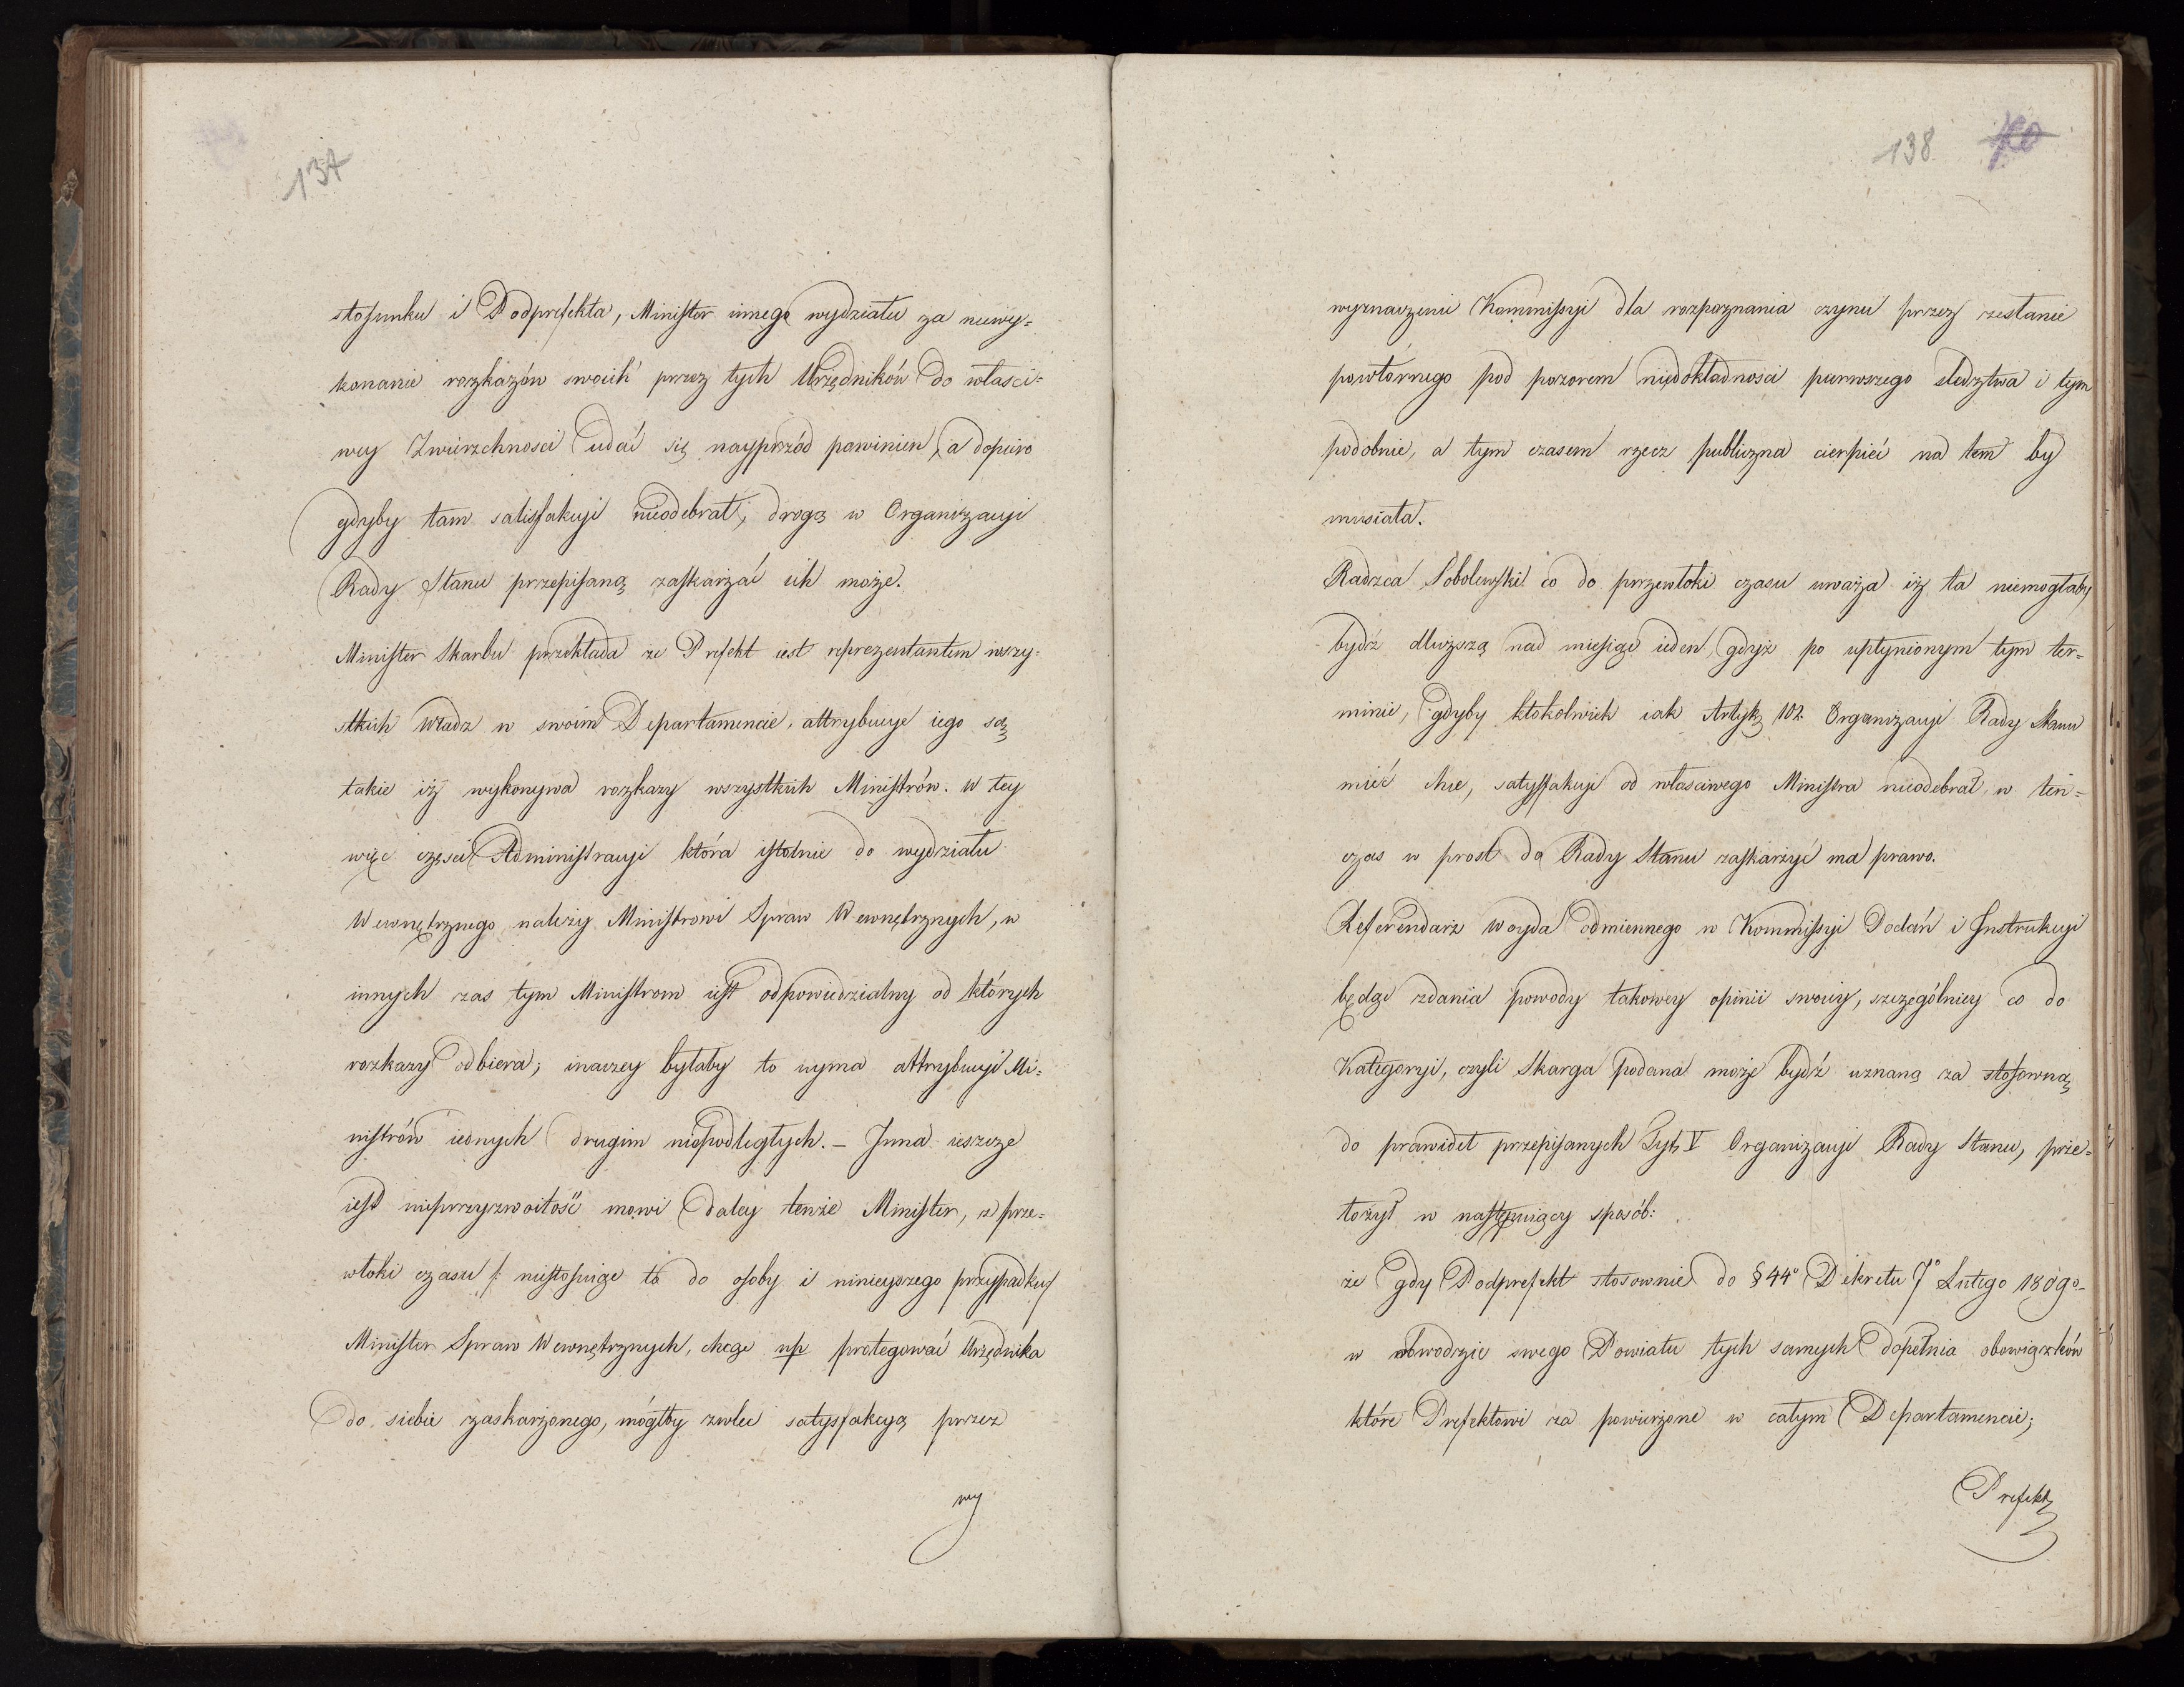 137
stosunku i Podprefekta, Minister innego wydziału za niewy=
konanie rozkazów swoich przez tych Urzędników do właści=
wey Zwierzchności udać się nayprzód powinien, a dopiero
gdyby tam satisfakcyi nieodebrał, drogą w Organizacyi
Rady Stanu przepisaną zaskarżać ich może.
Minister Skarbu przekłada że Prefekt iest reprezentantem wszy=
stkich Władz w swoim Departamencie, attrybucye iego są
takie iż wykonywa rozkazy wszystkich Ministrów. w tey
więc części Administracyi która istotnie do wydziału
Wewnętrznego należy Ministrowi Spraw Wewnętrznych, w
innych zas tym Ministrom iest odpowiedzialny od których
rozkazy odbiera; inaczey byłaby to uyma attrybucyi Mi=
nistrów iednych drugim niepodległych. – Inna ieszcze
iest nieprzyzwoitość mowi daley tenże Minister, z prze=
włoki czasu /: niestosuiąc to do osoby i ninieyszego przypadku:/
Minister Spraw Wewnętrznych, chcąc np protegować Urzędnika
do siebie zaskarżonego, mógłby zwlec satysfakcyą przez
wy
138
wyznaczenie Kommissyi dla rozpoznania czynu przez zesłanie
powtórnego pod pozorem niedokładności pierwszego śledztwa i tym
podobnie, a tym czasem rzecz publiczna cierpieć na tem by
musiała.
Radzca Sobolewski co do przewłoki czasu uważa iż ta niemogłaby
bydź dłuższą nad miesiąc ieden, gdyż po upłynionym tym ter=
minie, gdyby ktokolwiek iak Artyk 102. Organizacyi Rady Stanu
mieć chce, satysfakcyi od właściwego Ministra nieodebrał, w ten=
czas w prost do Rady Stanu zaskarżyć ma prawo.
Referendarz Woyda odmiennego w Kommissyi Podań i Instrukcyi
będąc zdania powody takowey opinii swoiey, szczególniey co do
Kategoryi, czyli Skarga podana może bydź uznaną za stosowną
do prawideł przepisanych Tyt. V Organizacyi Rady Stanu, prze=
łożył w następuiący sposób:
że gdy Podprefekt stosownie do § 44º Dekretu 7º Lutego 1809go
w obwodzie swego Powiatu tych samych dopełnia obowiązków
które Prefektowi za powierzone w całym Departamencie;
Prefekt